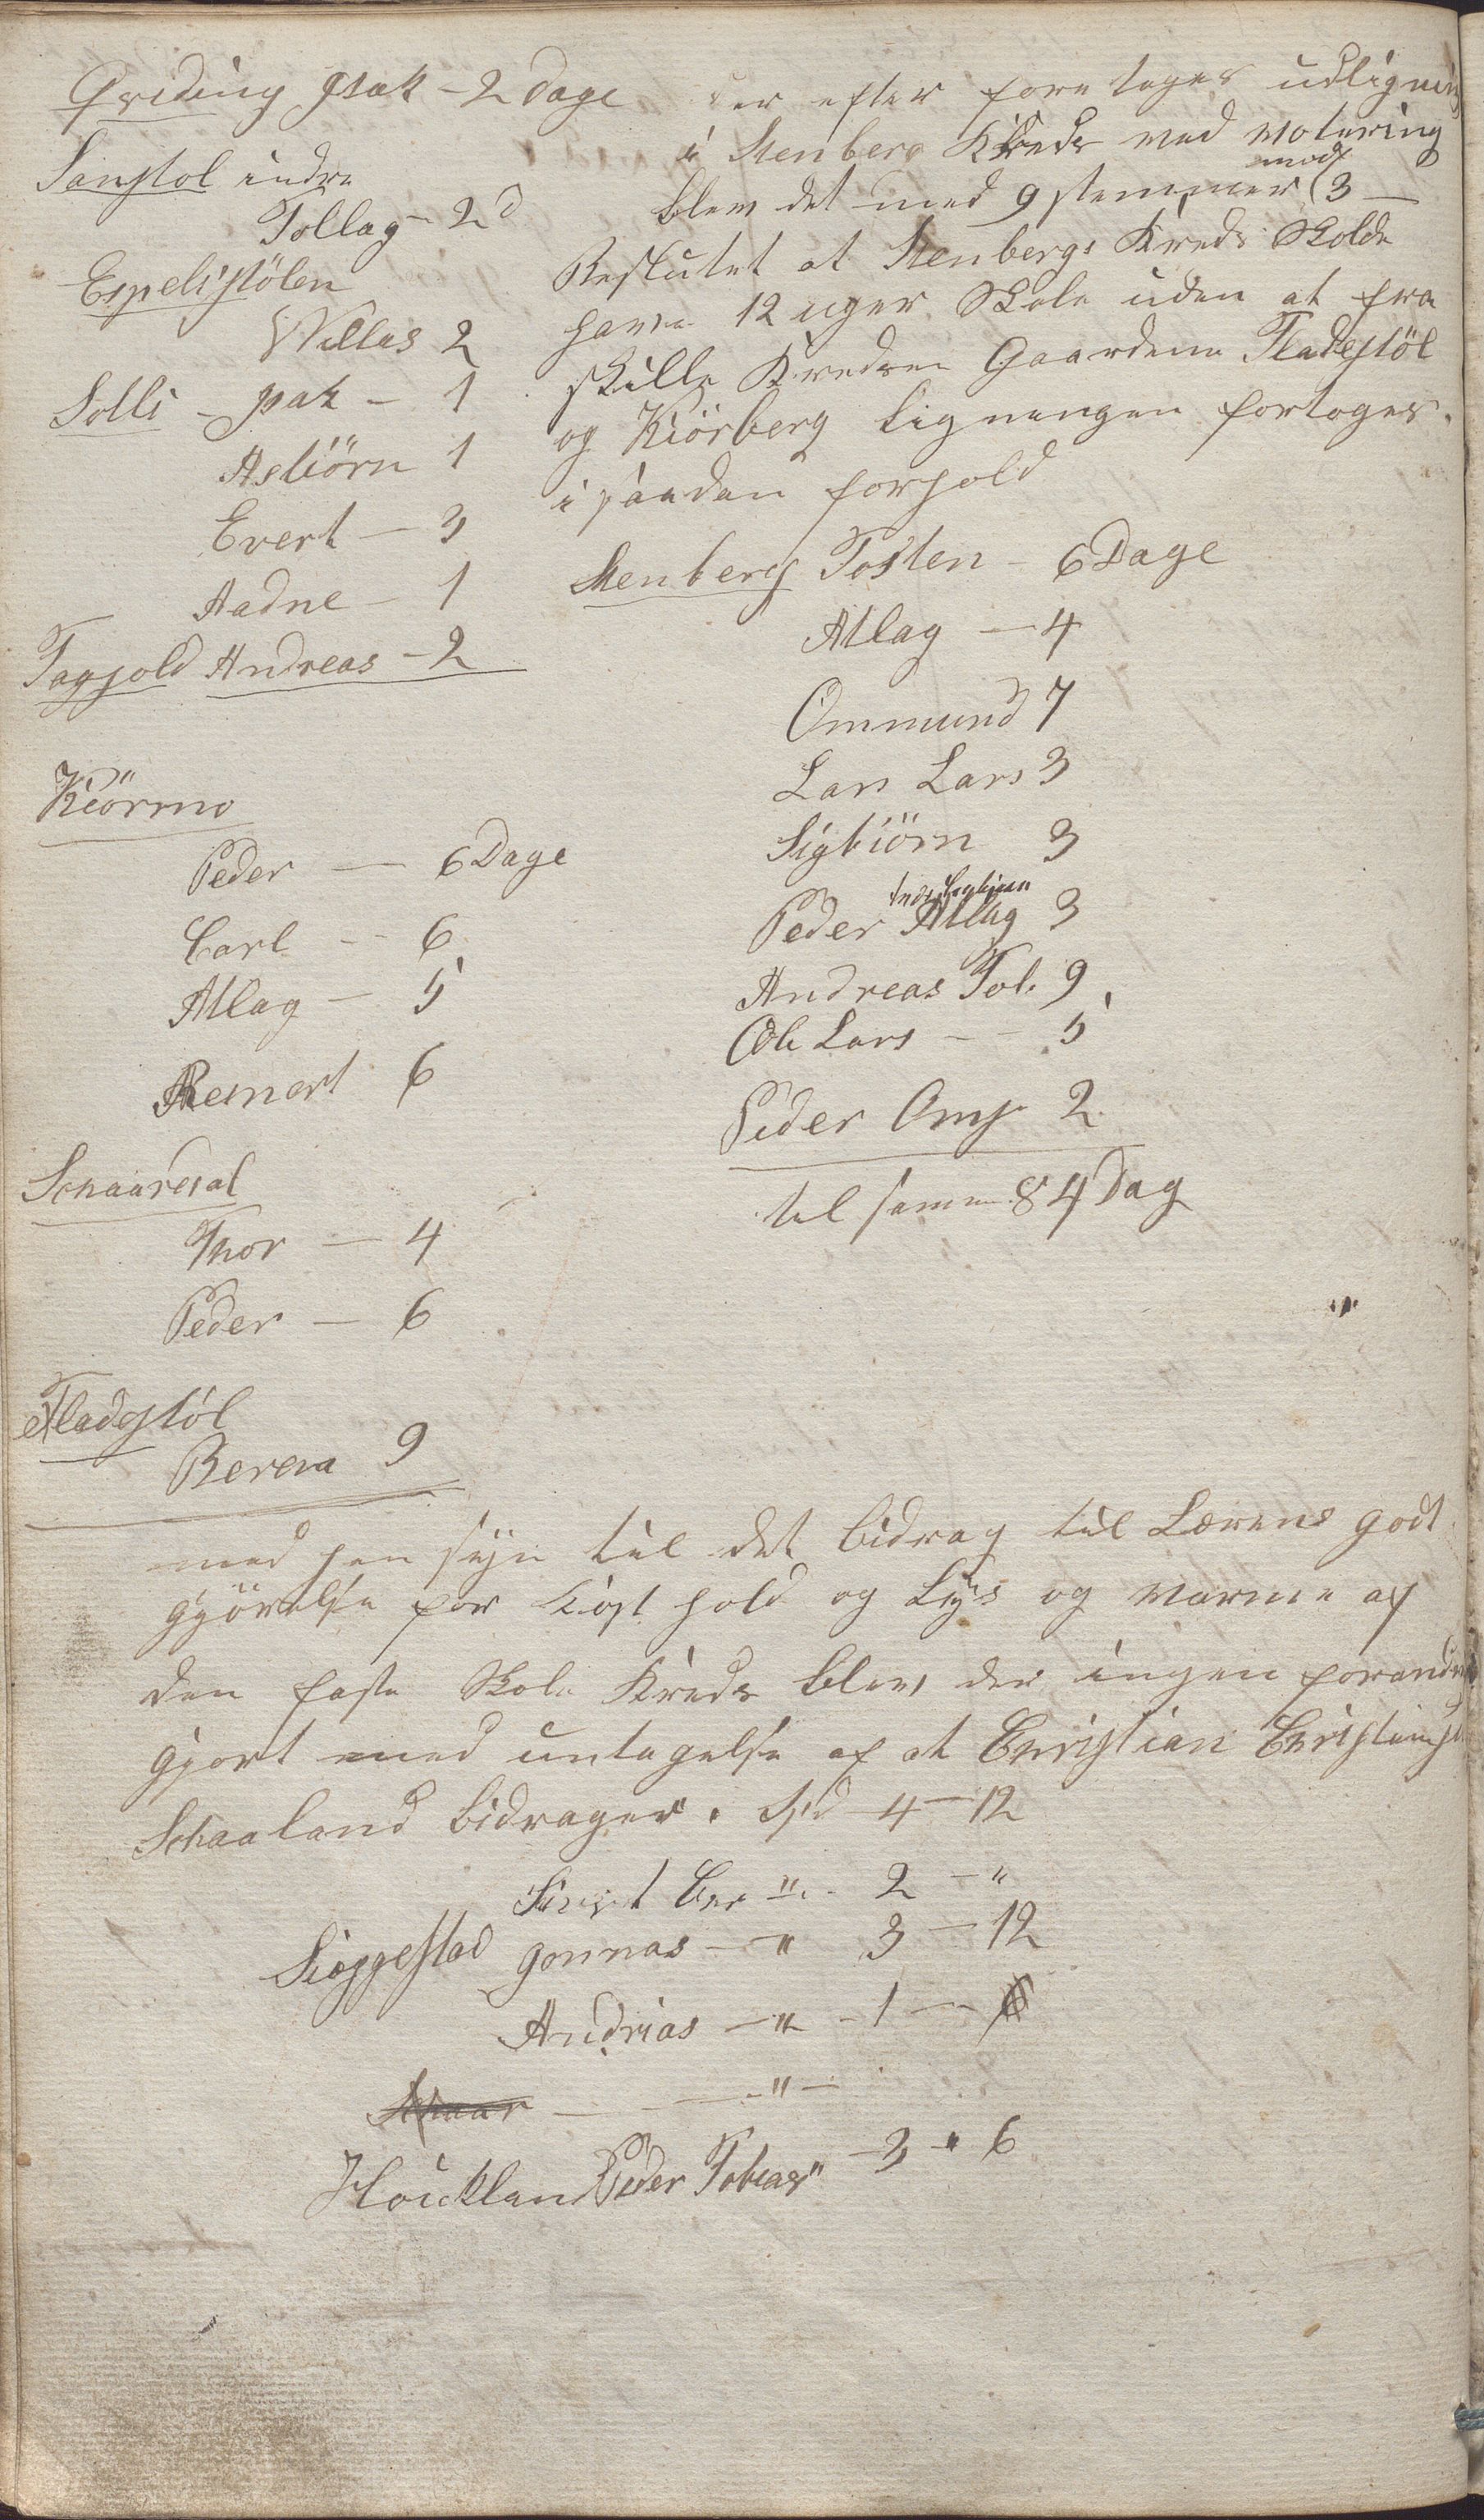 Qviding Isak - 2 Dage
Sanstöl indre
Tollag - 2 d
Espelistölen
Willas 2
Solli - Isak - 1
Asbiörn 1
Evert - 3
Aadne - 1
Andreas - 2
Kiörmo
Peder - 6 Dage
Carl - 6
Atlag - 5
Reinert 6
Schaaredal
Thor - 4
Peder - 6
Fladestöl
Berena 9
der efter foretoges udligning
i Stenberg Kreds ved Votering
blev det med 9 stemmer mod 3 -
Beslutet at Stenbergs Kreds Skolde
have 12 uger Skole uden at fra
skille Kredsen Gaardene Fladestöl
og Kiörberg Ligningen fortoges
i saadan forhold
Stenberg Tosten - 6 Dage
Atlag - 4
Ommund 7
Lars Lars 3
Sigbiörn 3
Peder 3
Andreas Tob. 9
Ole Lars - - 5
Peder Oms 2
til samen 84 Dag
med hen syn til det bidrag til Lærens godt
gjörelse for Kost hold og Lys og varme af
den faste Skole Kreds blev der ingen forandr
gjort med untagelse af at Christian Christens
Schaaland bidrager. Spd 4 - 12
Sivert Ber " - 2 - "
Sioggestad Gonnas - " 3 - 12
Andrias - " - 1 - 6
Schaar - - " -
Höickland Peder Tobias " - 3 " 6